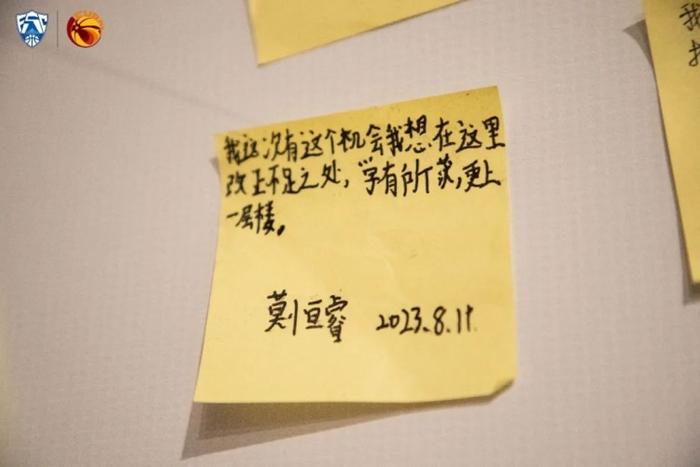 我这次有这个机会我想在这里
改正不足之处，学有所获，更上
一层楼。
莫恒睿 2023.8.11
我